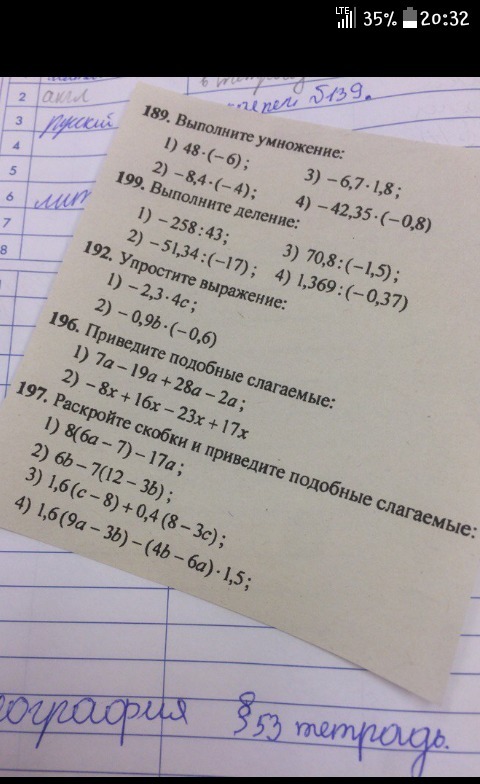 LTE 35% 20:32
2 англ
§139.
3 русский
4
5
6 лит
7
8
189. Выполните умножение:
1) 48·(−6); 3) −6,7·1,8;
2) −8,4·(−4); 4) −42,35·(−0,8)
199. Выполните деление:
1) −258:43; 3) 70,8:(−1,5);
2) −51,34:(−17); 4) 1,369:(−0,37)
192. Упростите выражение:
1) −2,3·4c;
2) −0,9b·(−0,6)
196. Приведите подобные слагаемые:
1) 7a−19a+28a−2a;
2) −8x+16x−23x+17x
197. Раскройте скобки и приведите подобные слагаемые:
1) 8(6a−7)−17a;
2) 6b−7(12−3b);
3) 1,6(c−8)+0,4(8−3c);
4) 1,6(9a−3b)−(4b−6a)·1,5;
ография §53 тетрадь.